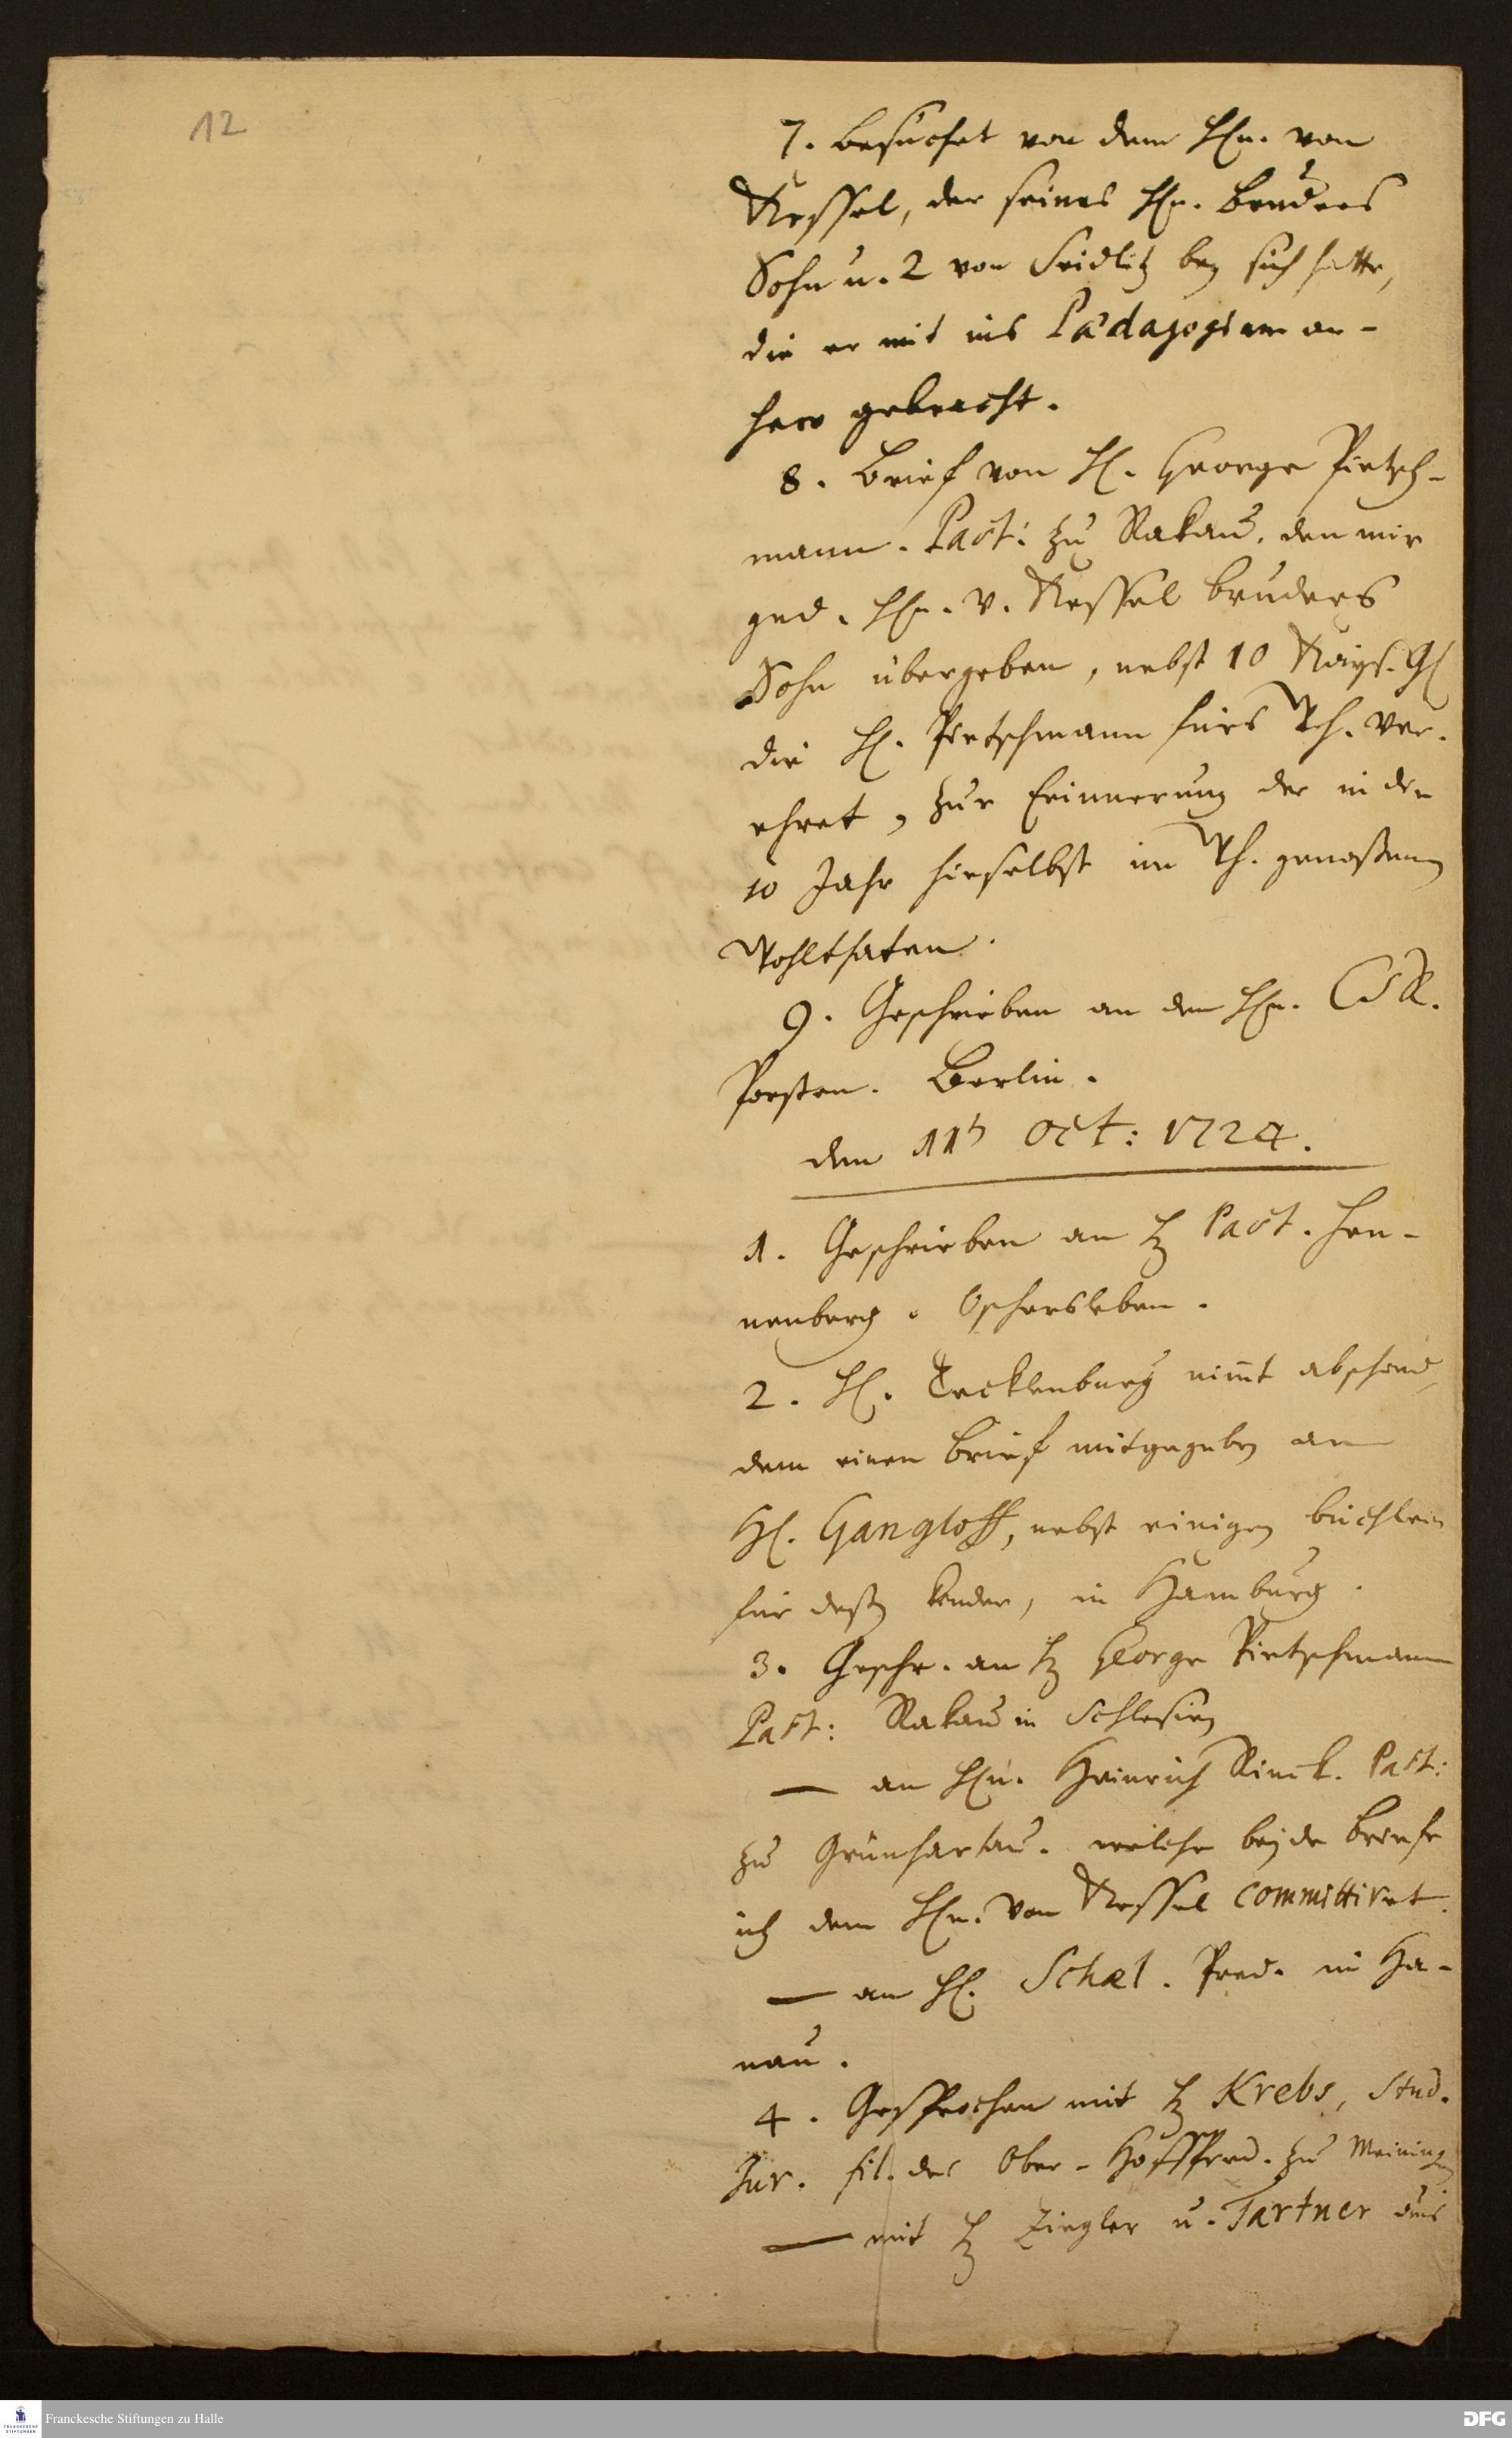 12
7. besuchet von dem Hn. von
Kessel, der seines Hn. Bruders
Sohn u. 2 von Seidlitz bey sich hatte,
die er mit ins Pædagogium an-
hero gebracht.
8. Brief von H. George Pietsch-
mann. Past: zu Rakau, den mir
ged. Hn. v. Kessel bruders
Sohn übergeben, nebst 10 Kays. Gl
die H. Pietschmann fürs Wh. ver-
ehret, zur Erinnerung der in den
10 Jahr hieselbst im Wh. genoßenen
Wohlthaten.
9. Geschrieben an den Hn. CR.
Porsten. Berlin.
den 11t Oct: 1724.
1. Geschrieben an H Past. Hen-
nenberg. Oschersleben.
2. H. Tecklenburg nimt abschied,
dem einen brief mitgegeben an
H. Gangloff, nebst einigen büchlein
für deßen kinder, in Hamburg.
3. Geschr. an H George Pietschmann
Past: Rakau in Schlesien
— an Hn. Heinrich Rinck. Past:
zu Grünhartau. welche beyde briefe
ich dem Hn. von Kessel committiret.
— an H. Schæl. Pred. in Ha-
nau.
4. Gesprochen mit H Krebs, Stud.
Jur. fil. des Ober-Hoffpred. zu Meiningen
— mit H Ziegler u. Tartner aus
Franckesche Stiftungen zu Halle
DFG